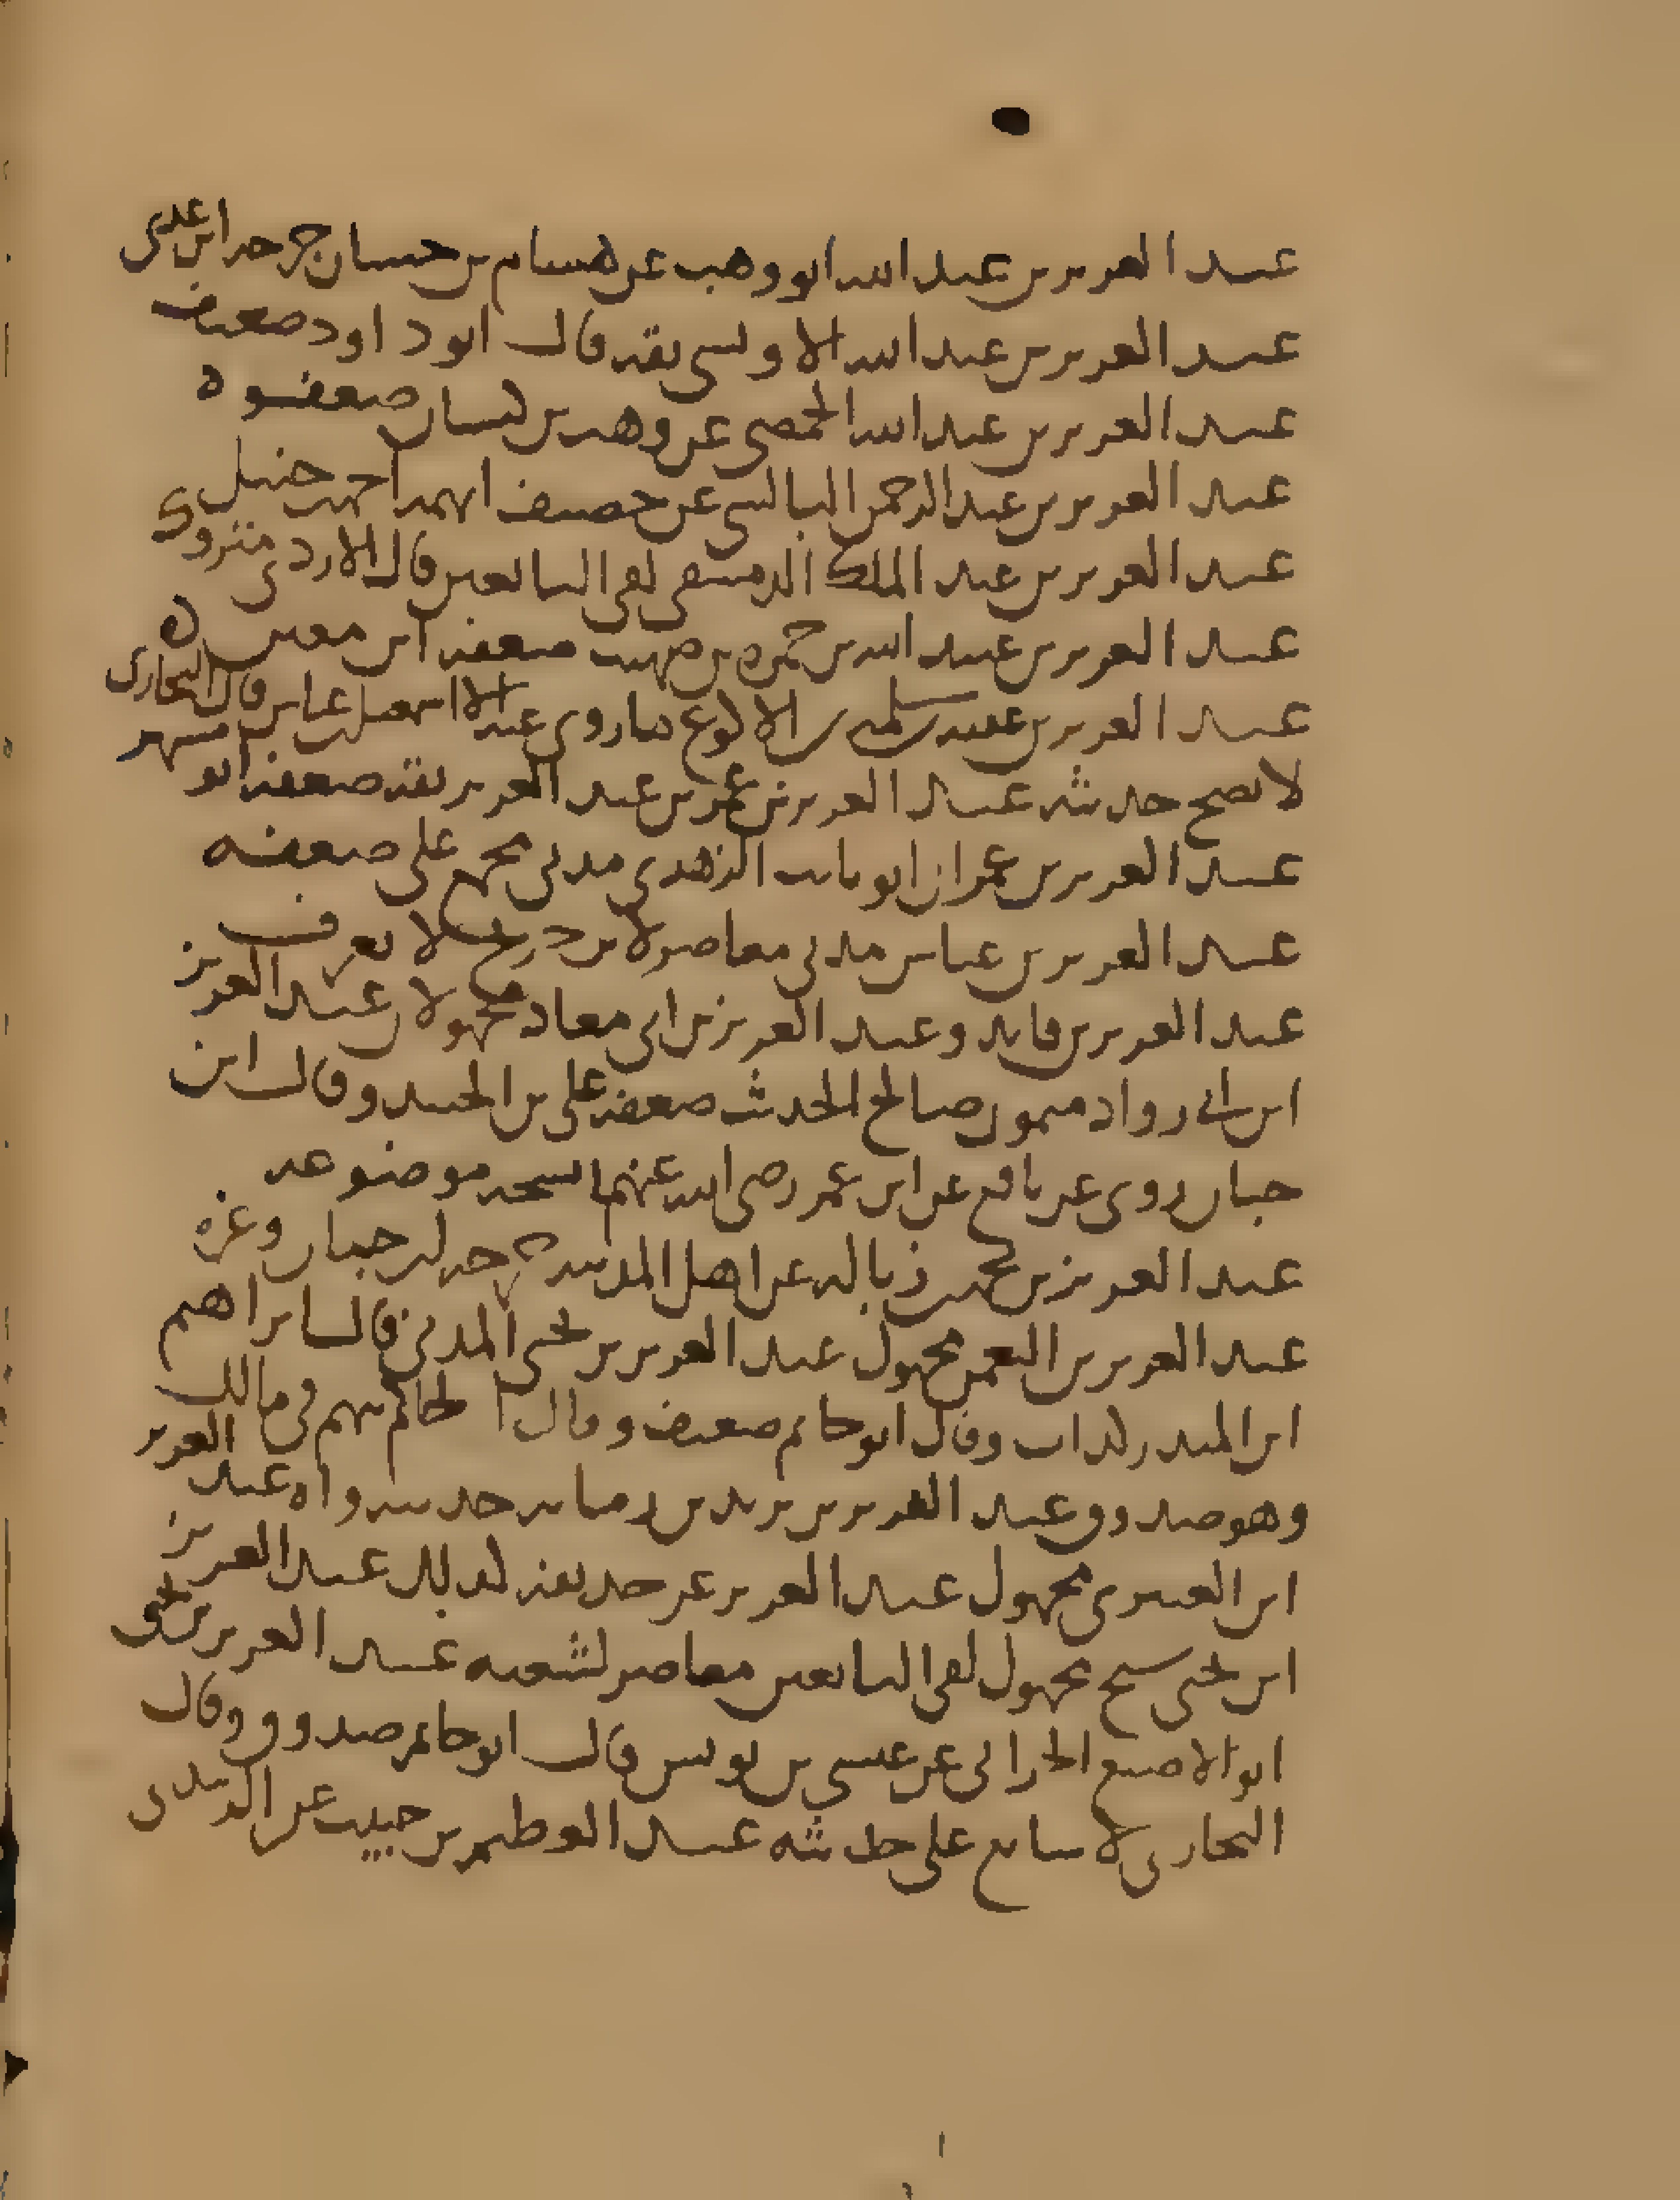 عبد العزيز بن عبد الله ابو وهب عن هشام بن حسان جرحه ابن عدى
عبد العزيز بن عبد الله الاويسى ثقه قال ابو داود ضعيف
عبد العزيز بن عبد الله الحمصى عن وهب بن كيسان ضعفوه
عبد العزيز بن عبد الرحمن البالسى عن خصيف اتهمه احمد بن حنبل
عبد العزيز بن عبد الملك الدمشقى لقى التابعين قال الازدى متروك
عبد العزيز بن عبيد الله بن حمزه بن صهيب ضعفه ابن معين ه
عبد العزيز بن عقبه بن سلمه بن الاكوع ما روى عنه الا اسمعيل بن عياش قال البخارى
لا يصح حديثه عبد العزيز بن عمر بن عبد العزيز ثقه ضعفه ابو مسهر
عبد العزيز بن عمران ابو ثابت الزهرى مدنى مجمع على ضعفه
عبد العزيز بن عياش مدنى معاصر لابن جريج لا يعرف
عبد العزيز بن فايد وعبد العزيز بن ابى معاذ مجهولان عبد العزيز
ابن ابى رواد ميمون صالح الحديث ضعفه على بن الجنيد وقال ابن
حبان روى عن نافع عن ابن عمر رضى الله عنهما نسخه موضوعه
عبد العزيز بن محمد بن زباله عن اهل المدينه جرحه ابن حبان وغيره
عبد العزيز بن النعمن مجهول عبد العزيز بن يحيى المدنى قال ابراهيم
ابن المنذر كذاب وقال ابو حاتم ضعيف وقال الحاكم يهم فى مالك
وهو صدوق وعبد العزيز بن يزيد بن رمانه حديثه واه عبد العزيز
ابن العنبرى مجهول عبد العزيز عن حذيفه كذلك عبد العزيز
ابن يحيى شيخ مجهول لقى التابعين معاصر لشعبه عبد العزيز بن يحيى
ابو الاصبغ الحرانى عن عيسى بن يونس قال ابو حاتم صدوق وقال
البخارى لا يتابع على حديثه عبد العظيم بن حبيب عن الزبيدى